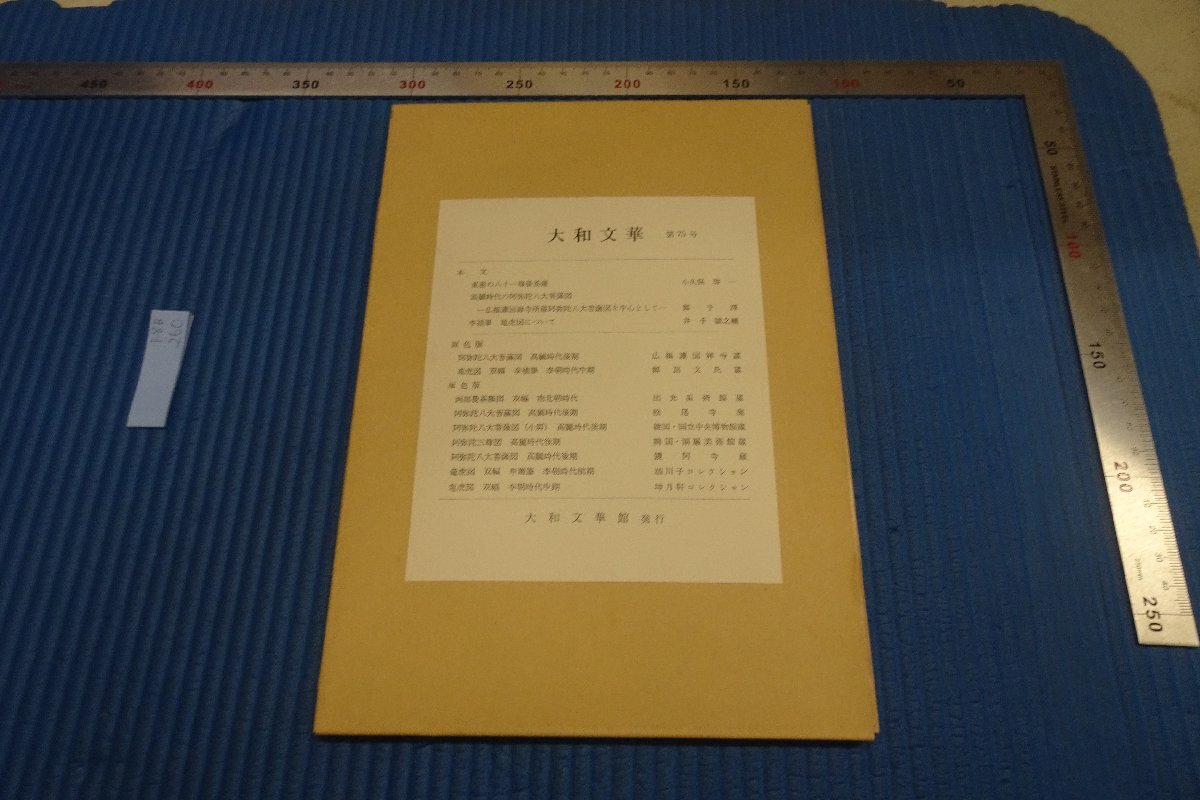 450 400 350 300 250 200 150 100 50
50
STAINLESS STEEL
100
150
200
250
大和文華 第75号
本文
東密の八十一尊曼荼羅 小久保 啓一
高麗時代の阿弥陀八大菩薩図
—広福護国禅寺所蔵阿弥陀八大菩薩図を中心として— 鄭于澤
李禎筆 竜虎図について 井手誠之輔
原色版
阿弥陀八大菩薩図 高麗時代後期 広福護国禅寺蔵
竜虎図 双幅 李禎筆 李朝時代中期
単色版
両部曼荼羅図 双幅 南北朝時代 出光美術館蔵
阿弥陀八大菩薩図 高麗時代後期 松尾寺蔵
阿弥陀八大菩薩図(小品) 高麗時代後期 韓国・国立中央博物館蔵
阿弥陀三尊図 高麗時代後期 韓国・湖巌美術館蔵
阿弥陀八大菩薩図 高麗時代後期
竜虎図 双幅 李朝時代前期 コレクション
竜虎図 双幅 李朝時代中期 コレクション
大和文華館 発行